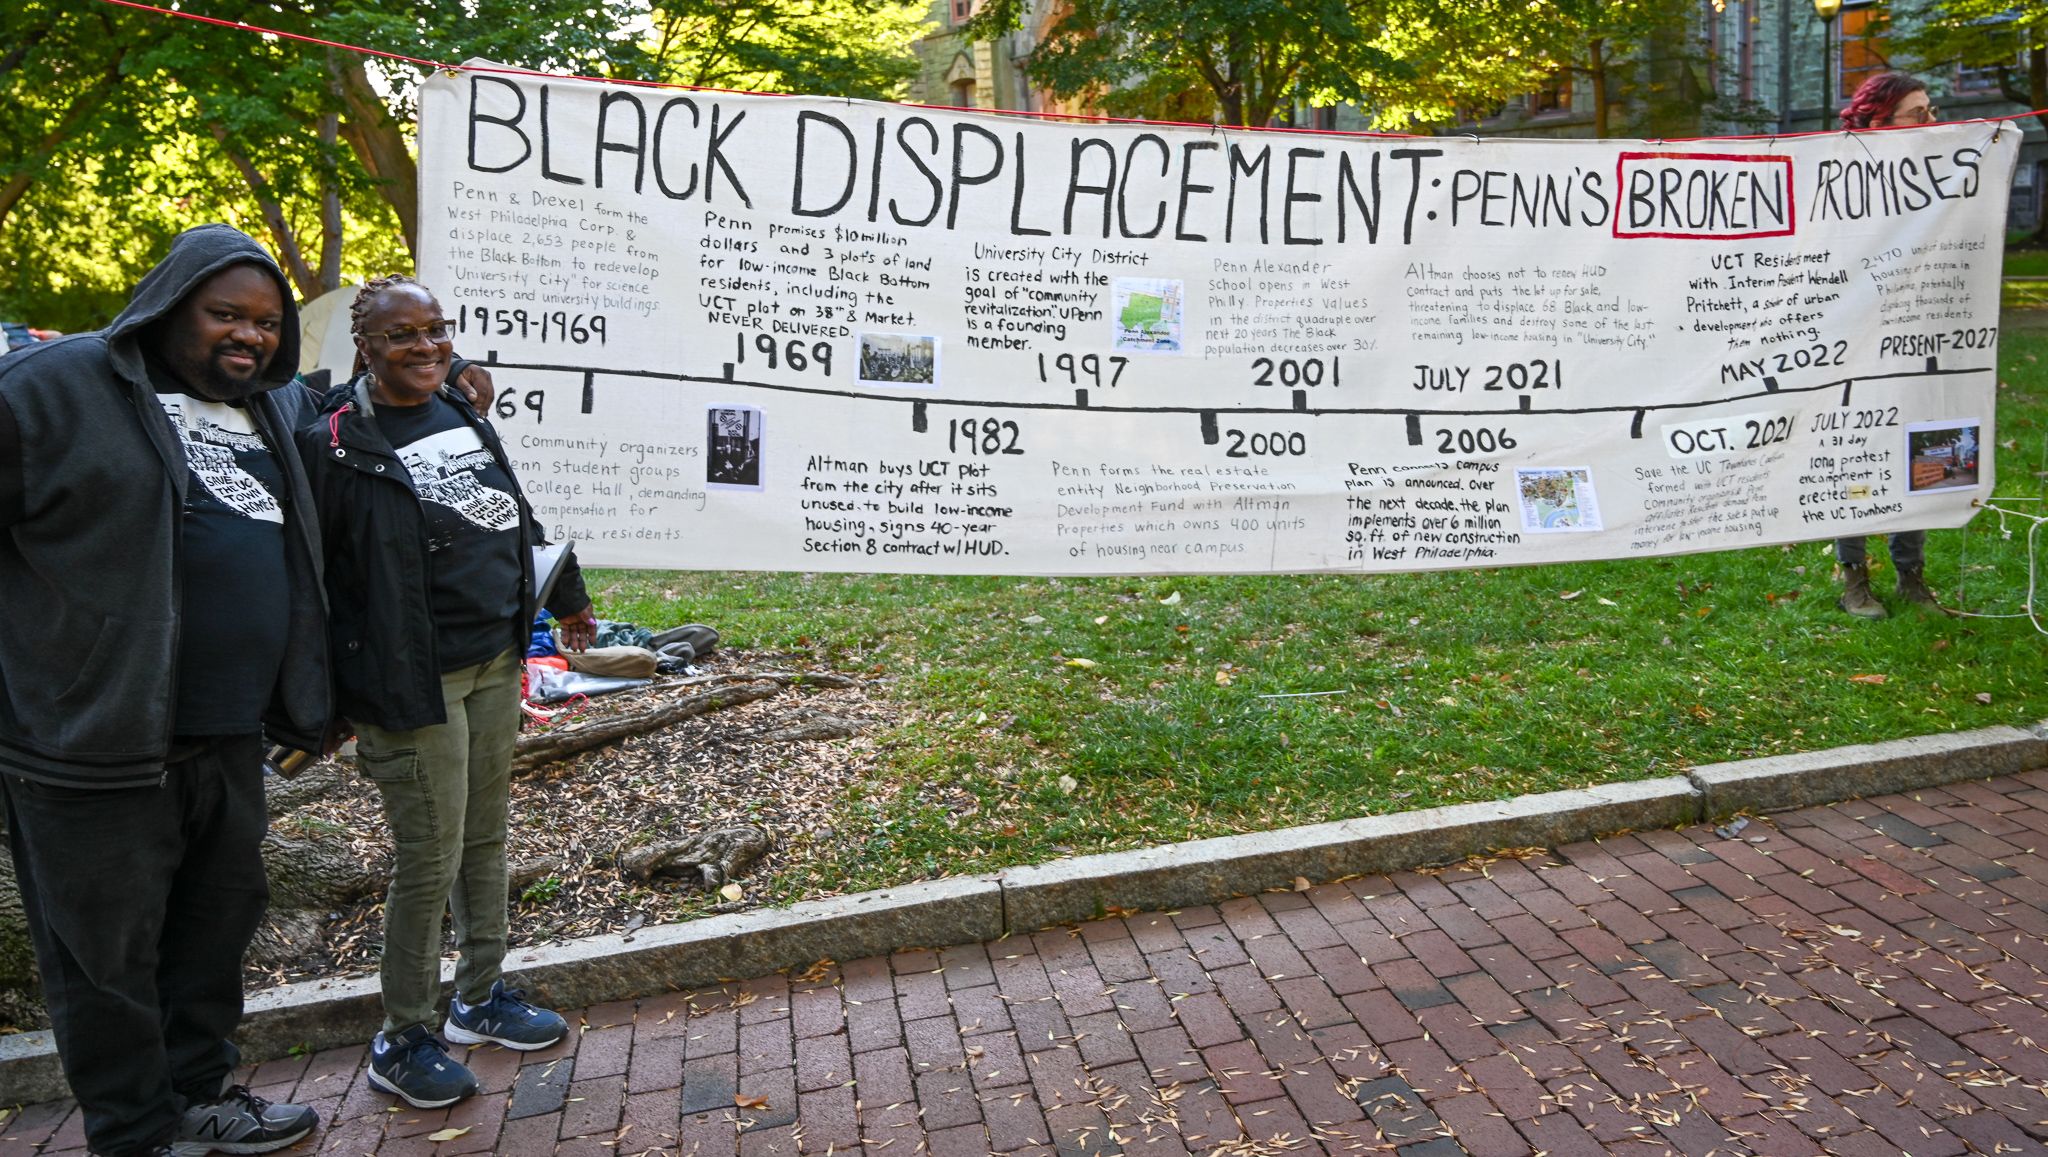 BLACK DISPLACEMENT: PENN'S BROKEN PROMISES
Penn & Drexel form the
West Philadelphia Corp. &
displace 2,653 people from
the Black Bottom to redevelop
"University City" for science
Centers and university buildings.
1959-1969
Penn promises $10 million
dollars and 3 plots of land
for low-income Black Bottom
residents, including the
UCT plot on 38th & Market.
NEVER DELIVERED.
1969
University City District
is created with the
goal of "community
revitalization". UPenn
is a founding
member.
1997
Penn Alexander
Catchment Zone
Penn Alexander
School opens in West
Philly. Properties Values
in the district quadruple over
next 20 years The Black
population decreases over 30%.
2001
Altman chooses not to renew HUD
Contract and puts the lot up for sale,
threatening to displace 68 Black and low-
income families and destroy some of the last
remaining low-income housing in "University City."
JULY 2021
UCT Residents meet
with Interim President Wendell
Pritchett, a scholar of urban
development who offers
them nothing.
MAY 2022
2,470 units of subsidized
housing set to expire in
Philadelphia, potentially
displacing thousands of
low-income residents
PRESENT-2027
69
Community organizers
enn student groups
College Hall, demanding
compensation for
Black residents.
1982
Altman buys UCT plot
from the city after it sits
unused. to build low-income
housing, signs 40-year
Section 8 contract w/ HUD.
2000
Penn forms the real estate
entity Neighborhood Preservation
Development Fund with Altman
Properties which owns 400 units
of housing near campus
2006
Penn connects campus
plan is announced. Over
the next decade, the plan
implements over 6 million
sq. ft. of new construction
in West Philadelphia.
OCT. 2021
Save the UC Townhomes Coalition
formed with UCT residents
Community organizers & Penn
affiliates. Residents demand Penn
intervene to stop the sale & put up
money for low-income housing
JULY 2022
A 31 day
long protest
encampment is
erected → at
the UC Townhomes
SAVE
THE UC
TOWN
HOMES
SAVE
THE UC
TOWN
HOMES
N
N
N